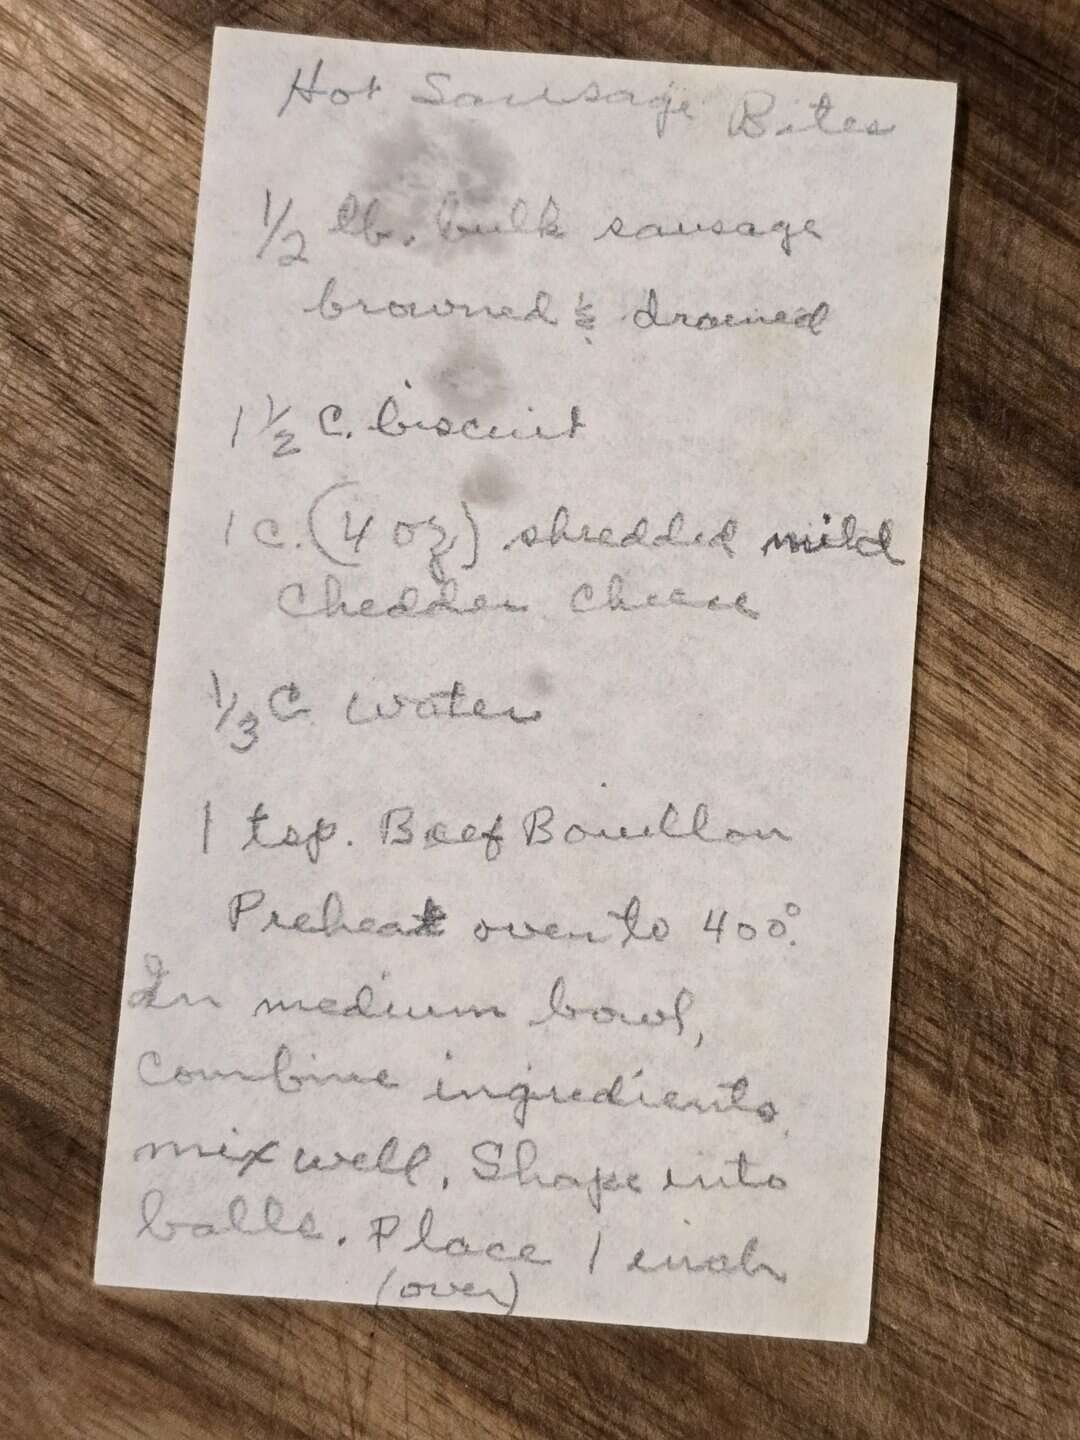 Hot Sausage Bites
1/2 lb. bulk sausage
browned & drained
1 1/2 C. biscuit
1 C. (4 oz) shredded mild
Chedder Cheese
1/3 C water
1 tsp. Beef Bouillon
Preheat oven to 400°.
In medium bowl,
combine ingredients,
mix well. Shape into
balls. Place 1 inch
(over)